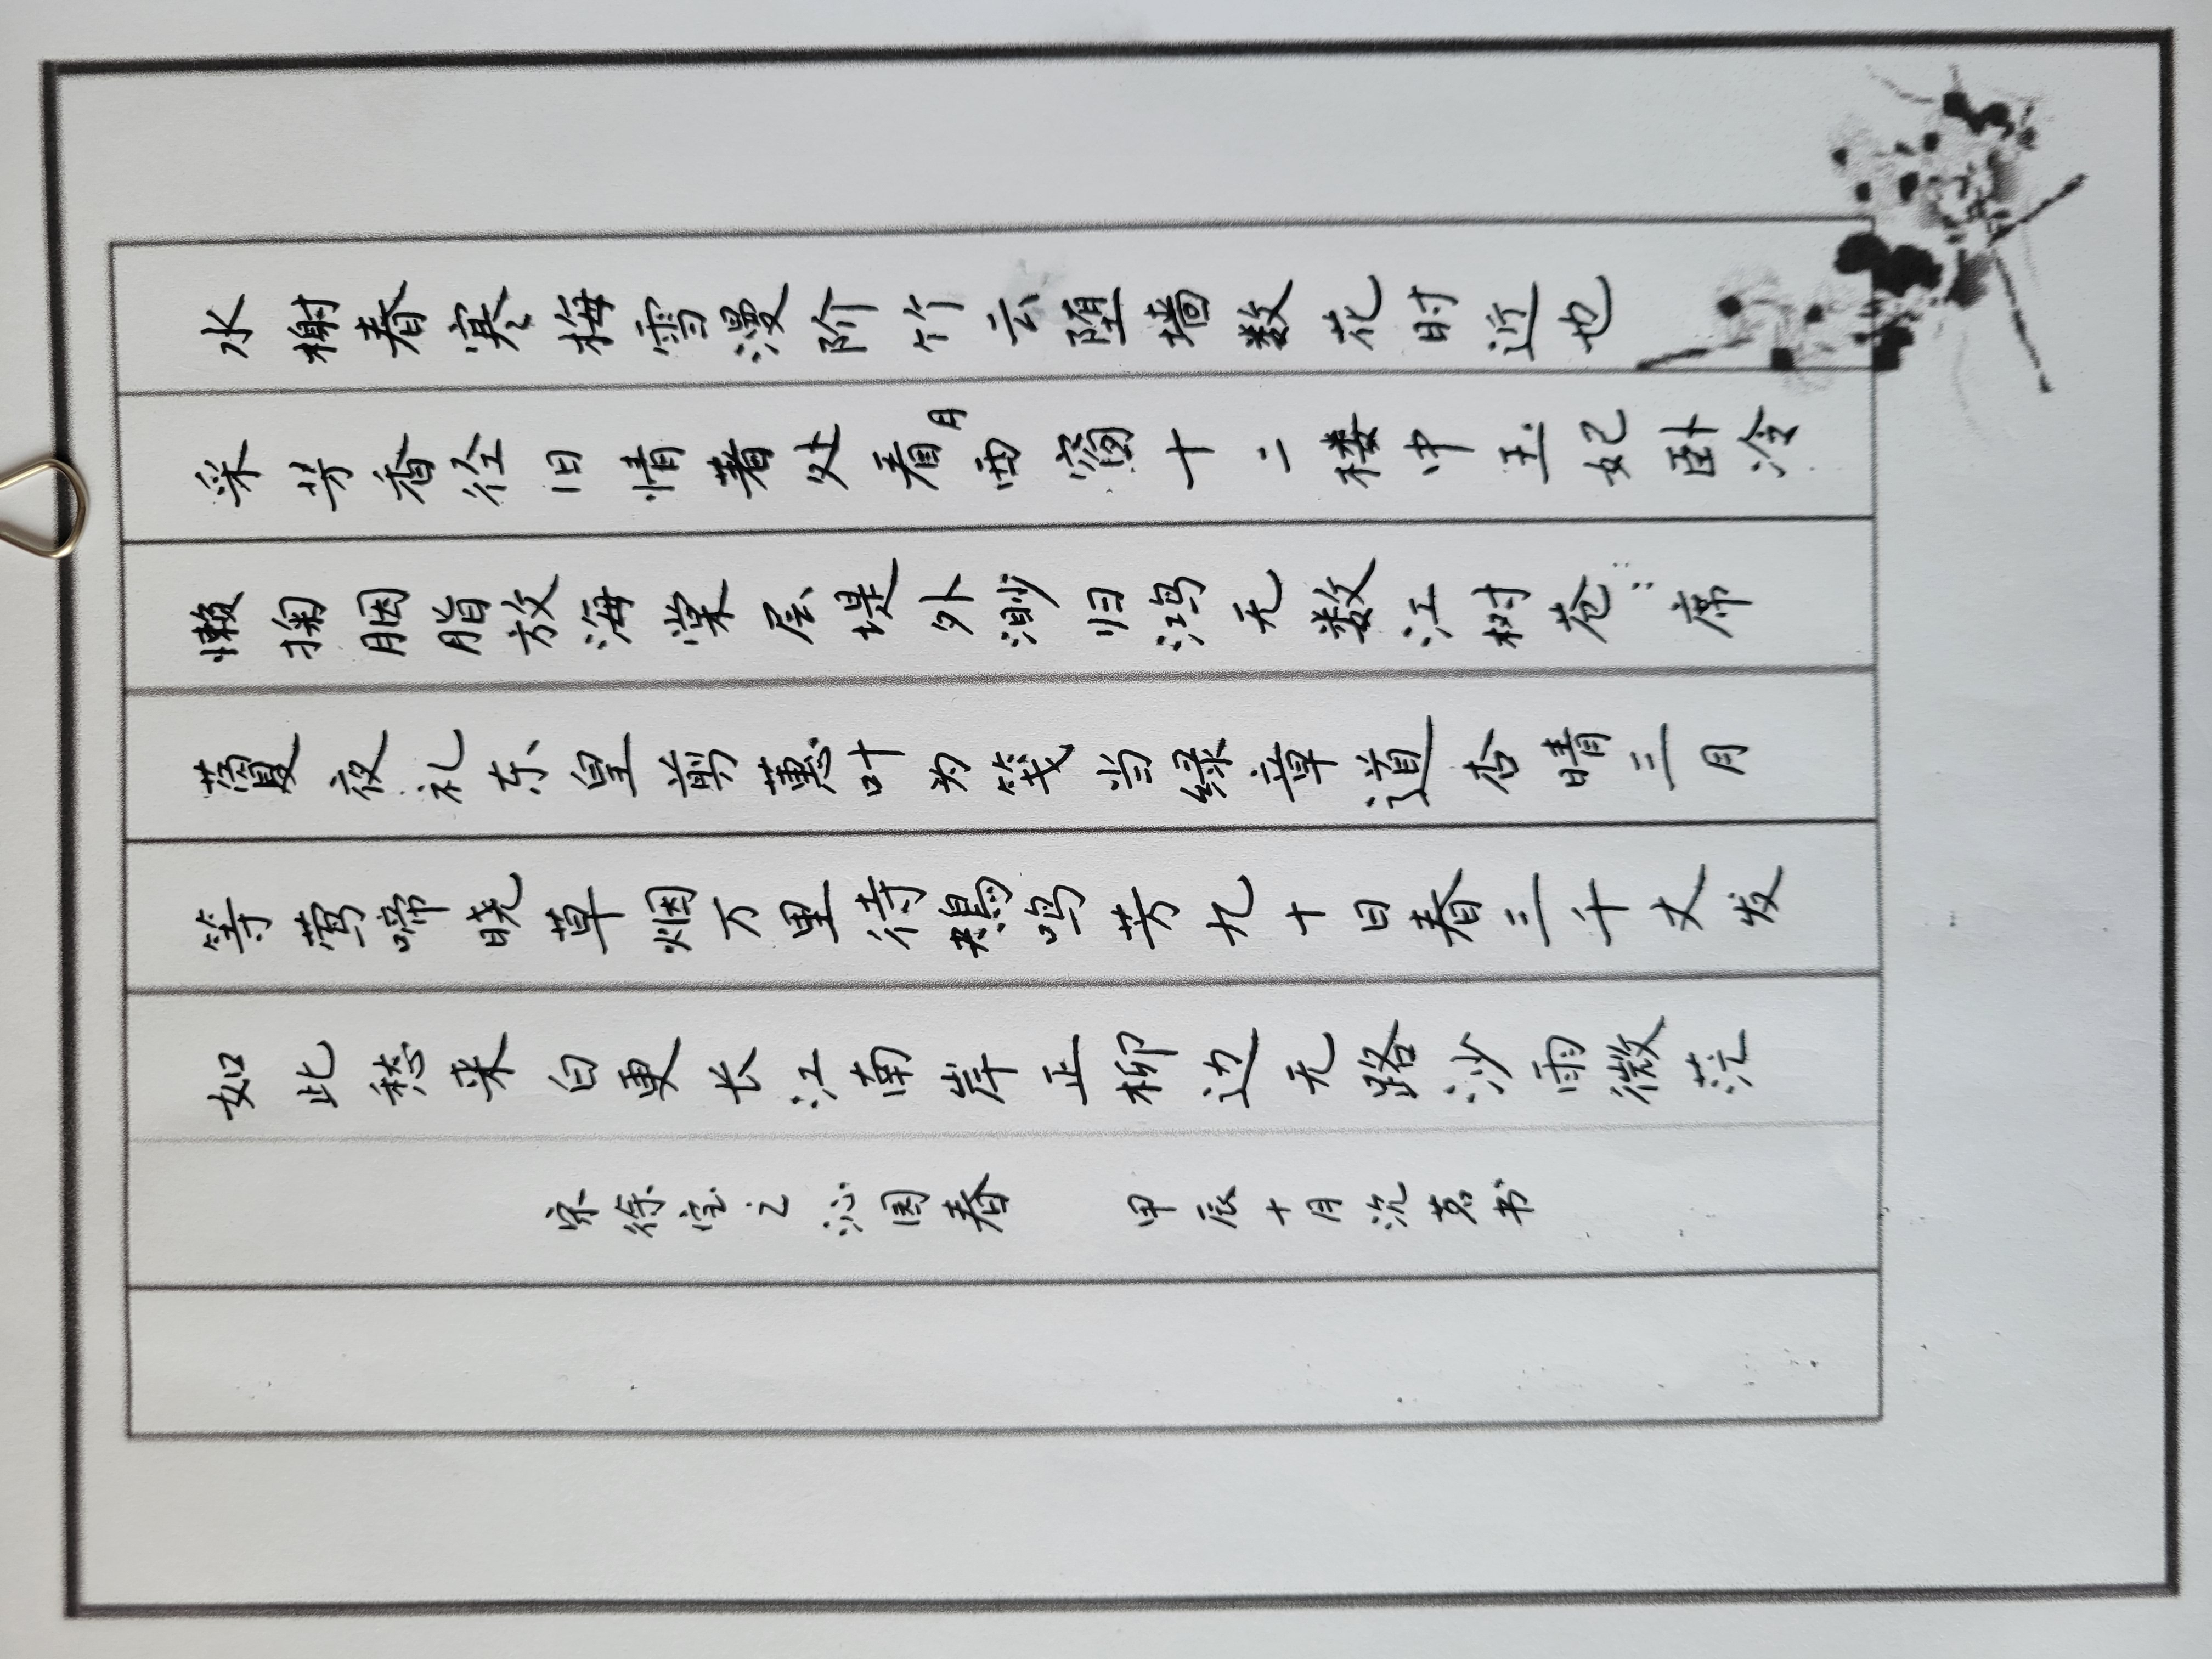 水榭春寒梅雪漫阶竹云堕墙数花时近也
采芳香径旧情著处看月西窗十二楼中玉妃卧冷
懒掬胭脂放海棠层堤外渺归鸿无数江树苍：席
藑夜礼东皇剪蕙叶为笺当绿章道杏晴三月
等莺啼晓草烟万里待鴂鸣芳九十日春三千丈发
如此愁来白更长江南岸正柳边无路沙雨微茫
宋徐宝之沁园春 甲辰十月沉茗书